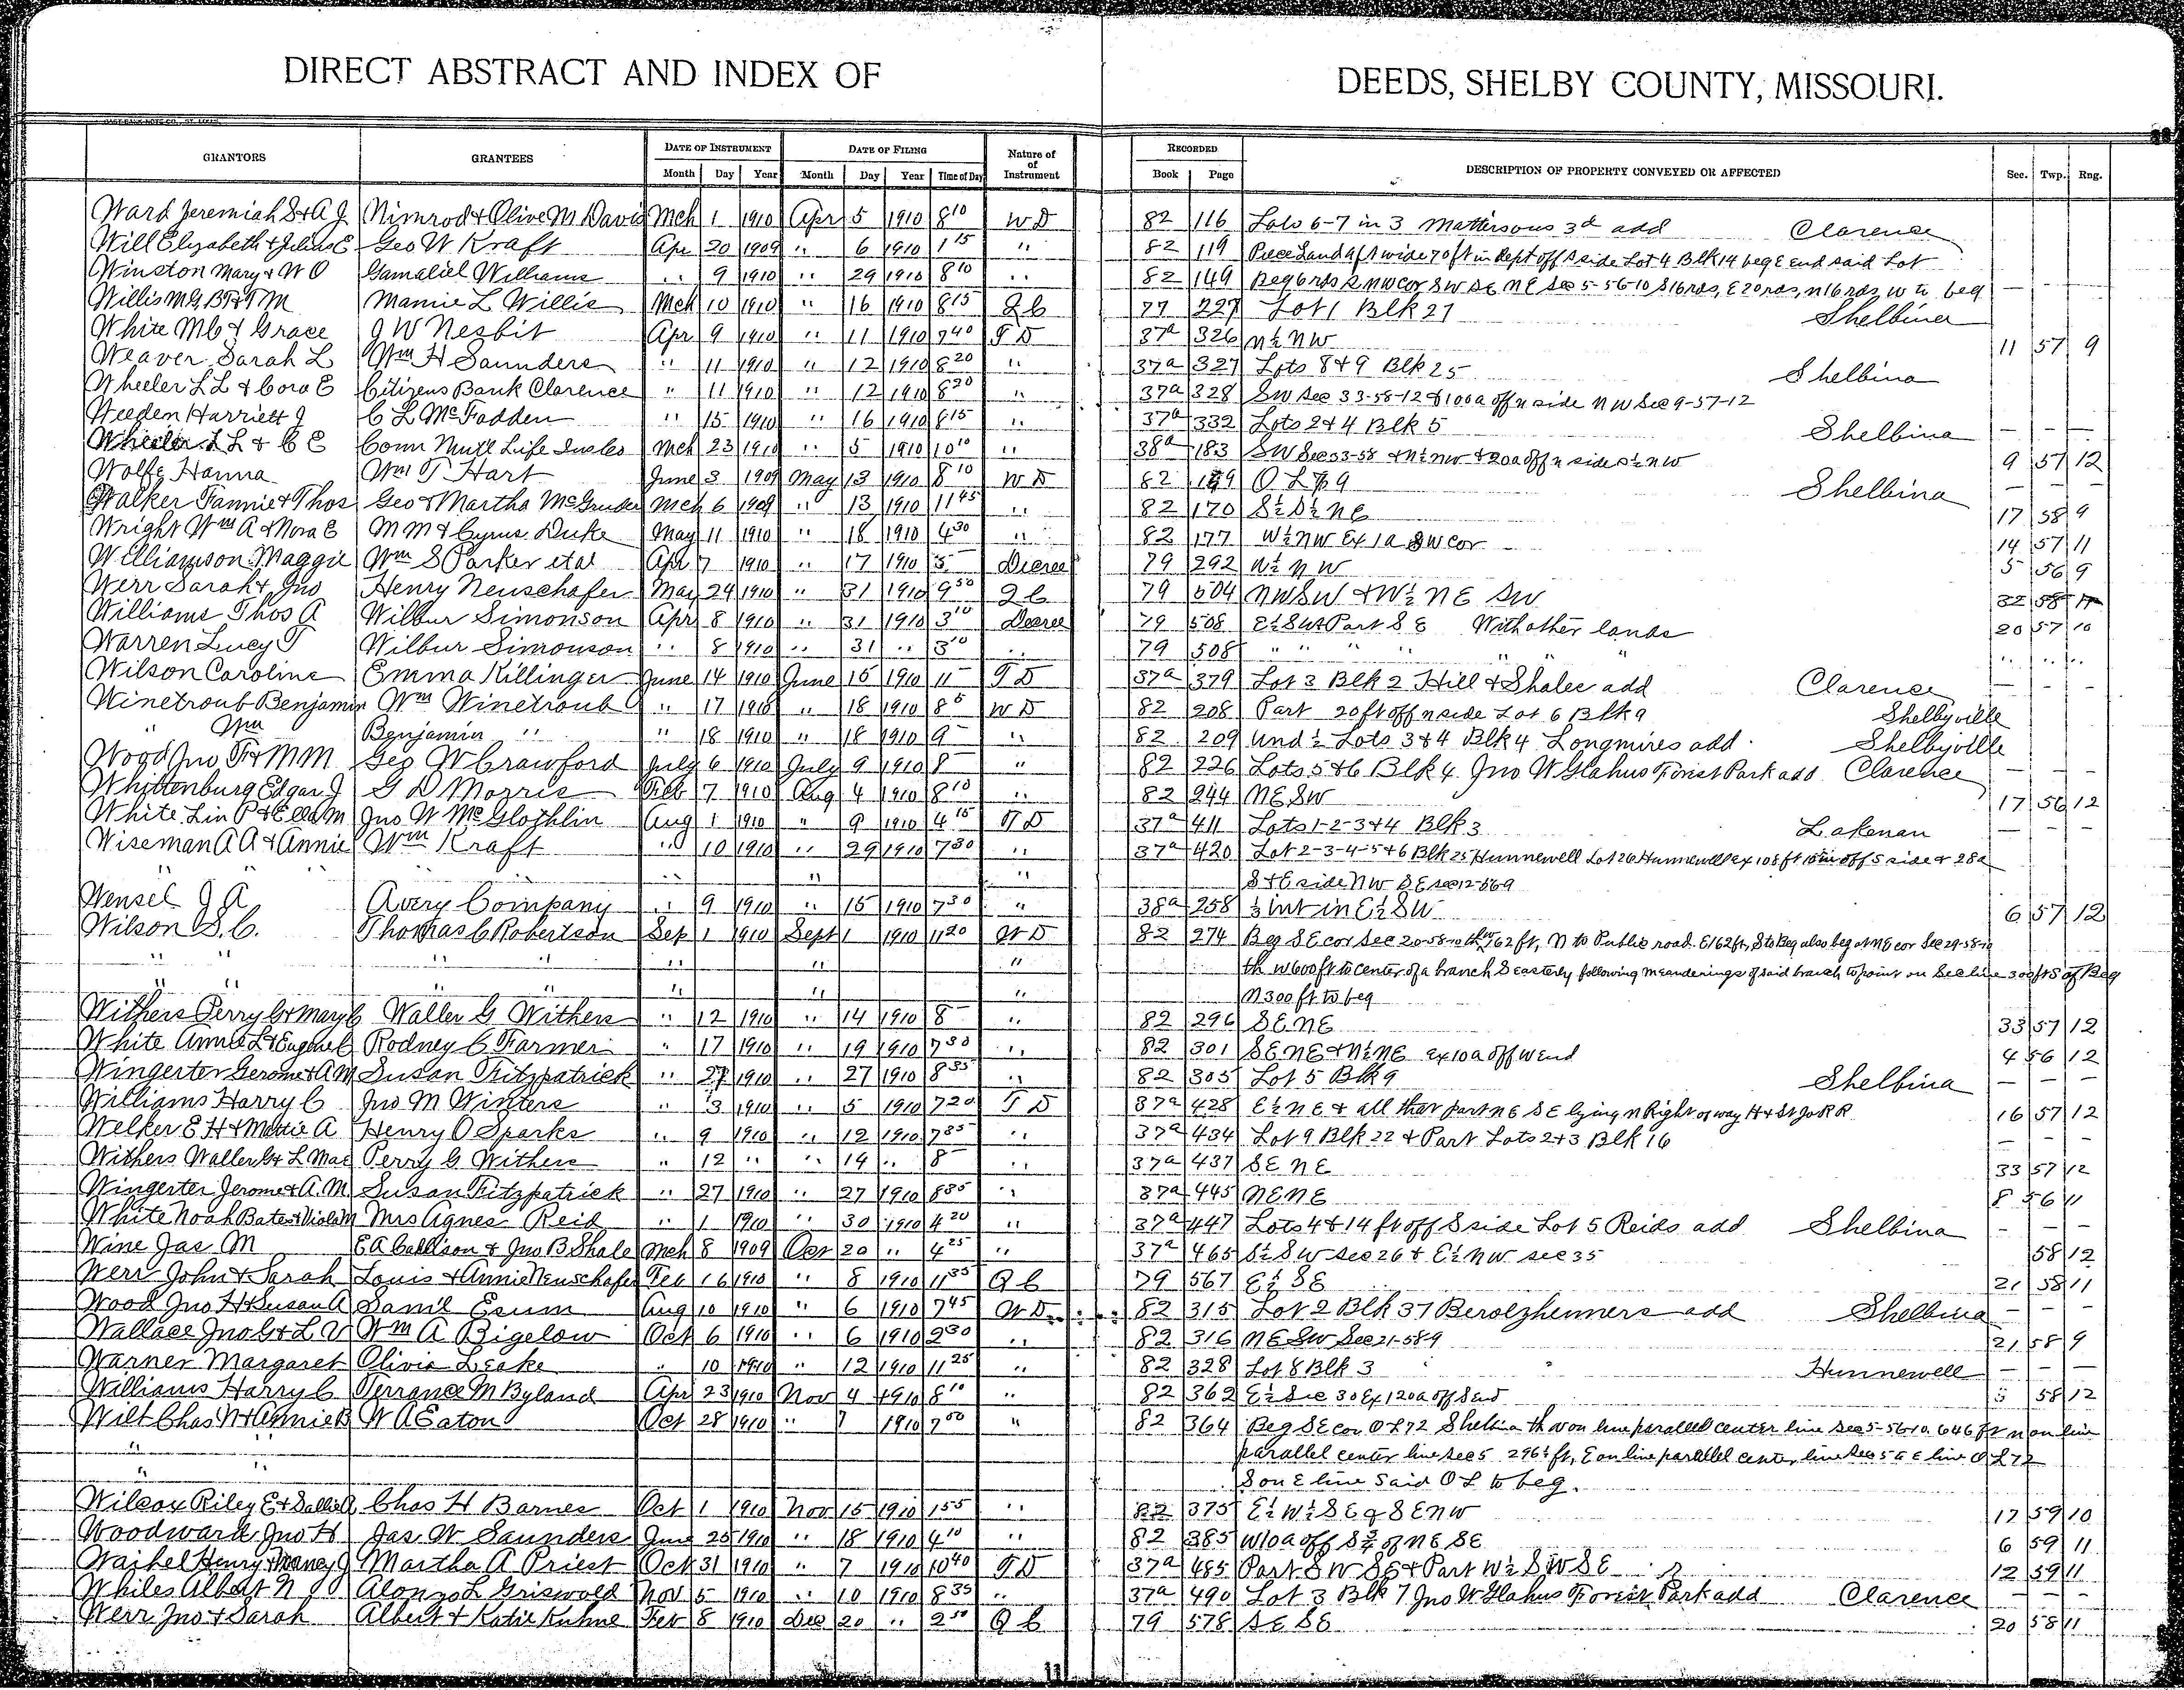 DIRECT ABSTRACT AND INDEX OF DEEDS, SHELBY COUNTY, MISSOURI.
GRANTORS GRANTEES DATE OF INSTRUMENT DATE OF FILING Nature of of Instrument RECORDED DESCRIPTION OF PROPERTY CONVEYED OR AFFECTED Sec. Twp. Rng.
Month Day Year Month Day Year Time of Day Book Page
Ward Jeremiah S & A J Nimrod & Olive M Davis Mch 1 1910 Apr 5 1910 8 10 W D 82 116 Lots 6-7 in 3 Mattersons 3d add Clarence
Will Elizabeth & Julius E Geo W Kraft Apr 20 1909 " 6 1910 1 15 " 82 119 Piece Land 4 ft wide 70 ft in dept off S side Lot 4 Blk 14 beg E end said Lot
Winston Mary & W O Gamaliel Williams " 9 1910 " 29 1910 8 10 " 82 149 Beg 6 rds S NW cor SW SE NE Sec 5-56-10 S 16 rds, E 20 rds, N 16 rds, W to beg — — —
Willis M G B F & T M Mamie L Willis Mch 10 1910 " 16 1910 8 15 Q C 77 227 Lot 1 Blk 27 Shelbina
White M C & Grace J W Nesbit Apr 9 1910 " 11 1910 7 40 T D 37a 326 N½ NW 11 57 9
Weaver Sarah L Wm H Saunders " 11 1910 " 12 1910 8 20 " 37a 327 Lots 8 & 9 Blk 25 Shelbina
Wheeler L L & Cora E Citizens Bank Clarence " 11 1910 " 12 1910 8 20 " 37a 328 SW Sec 33-58-12 & 100a off N side NW Sec 9-57-12
Weeden Harriett J C L McFadden " 15 1910 " 16 1910 8 15 " 37a 332 Lots 2 & 4 Blk 5 Shelbina — — —
Wheeler L L & C E Conn Mutl Life Ins Co Mch 23 1910 " 5 1910 10 10 " 38a 183 SW Sec 33-58 & N½ NW & 20a off N side S½ NW 9 57 12
Wolfe Hanna Wm T Hart June 3 1909 May 13 1910 8 10 W D 82 169 O L 79 Shelbina — — —
Walker Fannie & Thos Geo & Martha McGruder Mch 6 1909 " 13 1910 11 45 " 82 170 S½ S½ NE 17 58 9
Wright Wm A & Mora E M M & Cyrus Duke May 11 1910 " 18 1910 4 30 " 82 177 W½ NW Ex 1a SW cor 14 57 11
Williamson Maggie Wm S Parker et al Apr 7 1910 " 17 1910 3 Decree 79 292 W½ NW 5 56 9
Werr Sarah & Jno Henry Neuschafer May 24 1910 " 31 1910 9 50 Q C 79 504 NW SW & W½ NE SW 32 58 11
Williams Thos A Wilbur Simonson Apr 8 1910 " 31 1910 3 10 Decree 79 508 E½ SW & Part SE With other lands 20 57 10
Warren Lucy T Wilbur Simonson " 8 1910 " 31 " 3 10 " 79 508 " " " " " " " " "
Wilson Caroline Emma Killinger June 14 1910 June 15 1910 11 T D 37a 379 Lot 3 Blk 2 Hill & Shalee add Clarence — — —
Winetroub Benjamin Wm Winetroub " 17 1910 " 18 1910 8 5 W D 82 208 Part 20 ft off N side Lot 6 Blk 9 Shelbyville
" Wm Benjamin " " 18 1910 " 18 1910 9 " 82 209 Und ½ Lots 3 & 4 Blk 4 Longmires add Shelbyville
Wood Jno T & M M Geo W Crawford July 6 1910 July 9 1910 8 " 82 226 Lots 5 & 6 Blk 4 Jno W Glahus Forest Park add Clarence — — —
Whittenburg Edgar J G D Morris Feb 7 1910 Aug 4 1910 8 10 " 82 244 NE SW 17 56 12
White Lin P & Ella M Jno W McGlothlin Aug 1 1910 " 9 1910 4 15 T D 37a 411 Lots 1-2-3 & 4 Blk 3 Lakenan — — —
Wiseman A A & Annie Wm Kraft " 10 1910 " 29 1910 7 30 " 37a 420 Lot 2-3-4-5 & 6 Blk 25 Hunnewell Lot 26 Hunnewell Ex 108 ft 10 in off S side & 28a
" " " " " S & E side NW SE Sec 12-56-9
Wensel J A Avery Company " 9 1910 " 15 1910 7 30 " 38a 258 ⅓ int in E½ SW 6 57 12
Wilson S. C. Thomas C Robertson Sep 1 1910 Sept 1 1910 11 20 W D 82 274 Beg SE cor Sec 20-58-10 th W 162 ft, N to Public road E 162 ft, S to Beg also beg at NE cor Sec 29-58-10
" " " " " " " th W 600 ft to center of a branch S easterly following meanderings of said branch to point on Sec line 300 ft S of Beg
" " " " " " " N 300 ft to beg
Withers Perry G & May C Waller G Withers " 12 1910 " 14 1910 8 " 82 296 SE NE 33 57 12
White Annie L & Eugene C Rodney C Farmer " 17 1910 " 19 1910 7 30 " 82 301 SE NE & N½ NE Ex 10a off W End 4 56 12
Wingerter Gerome & A M Susan Fitzpatrick " 27 1910 " 27 1910 8 35 " 82 305 Lot 5 Blk 9 Shelbina — — —
Williams Harry C Jno M Winters " 3 1910 " 5 1910 7 20 T D 37a 428 E½ NE & all that part NE SE lying N Right of way H & St Jo R R 16 57 12
Welker E H & Mattie A Henry O Sparks " 9 1910 " 12 1910 7 35 " 37a 434 Lot 9 Blk 22 & Part Lots 2 & 3 Blk 16 — — —
Withers Waller G & L Mae Perry G Withers " 12 " " 14 " 8 " 37a 437 SE NE 33 57 12
Wingerter Jerome & A. M Susan Fitzpatrick " 27 1910 " 27 1910 8 35 " 37a 445 NE NE 8 56 11
White Noah Bates & Viola M Mrs Agnes Reid " 1 1910 " 30 1910 4 20 " 37a 447 Lots 4 & 14 ft off S side Lot 5 Reids add Shelbina — — —
Wine Jas M E A Callison & Jno B Shale Mch 8 1909 Oct 20 " 4 25 " 37a 465 S½ SW Sec 26 & E½ NW Sec 35 58 12
Werr John & Sarah Louis & Annie Neuschafer Feb 16 1910 " 8 1910 11 35 Q C 79 567 E½ SE 21 58 11
Wood Jno H & Susan A Saml Esum Aug 10 1910 " 6 1910 7 45 W D 82 315 Lot 2 Blk 37 Berolzheimers add Shelbina — — —
Wallace Jno G & L V Wm A Bigelow Oct 6 1910 " 6 1910 2 30 " 82 316 NE SW Sec 21-58-9 21 58 9
Warner Margaret Olivia Leake " 10 1910 " 12 1910 11 25 " 82 328 Lot 8 Blk 3 Hunnewell — — —
Williams Harry C Terrance M Byland Apr 23 1910 Nov 4 1910 8 10 " 82 362 E½ Sec 30 Ex 120a off S end 3 58 12
Wilt Chas N & Annie B W A Eaton Oct 28 1910 " 7 1910 7 50 " 82 364 Beg SE cor O L 72 Shelbina th W on line parallel center line Sec 5-56-10 646 ft N on line
" parallel center line Sec 5 296½ ft, E on line parallel center line Sec 5 to E line O L 72
" " S on E line said O L to beg.
Wilcox Riley E & Sallie A Chas H Barnes Oct 1 1910 Nov 15 1910 1 55 " 82 375 E½ W½ SE & SE NW 17 59 10
Woodward Jno H Jas W Saunders June 25 1910 " 18 1910 4 10 " 82 385 W 10a off S½ of NE SE 6 59 11
Waibel Henry & Nancy J Martha A Priest Oct 31 1910 " 7 1910 10 40 T D 37a 485 Part SW SE & Part W½ SW SE 12 59 11
Whiles Albert N Alonzo L Griswold Nov 5 1910 " 10 1910 8 35 " 37a 490 Lot 3 Blk 7 Jno W Glahus Forest Park add Clarence — — —
Werr Jno & Sarah Albert & Katie Kuhne Feb 8 1910 Dec 20 " 2 50 Q C 79 578 SE SE 20 58 11